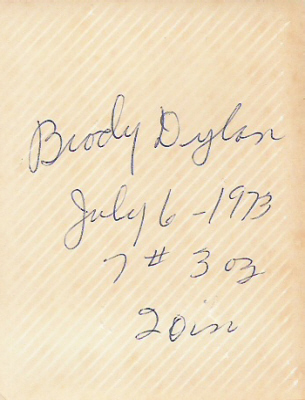 Brody Dylan
July 6 - 1973
7 # 3 oz
20 in